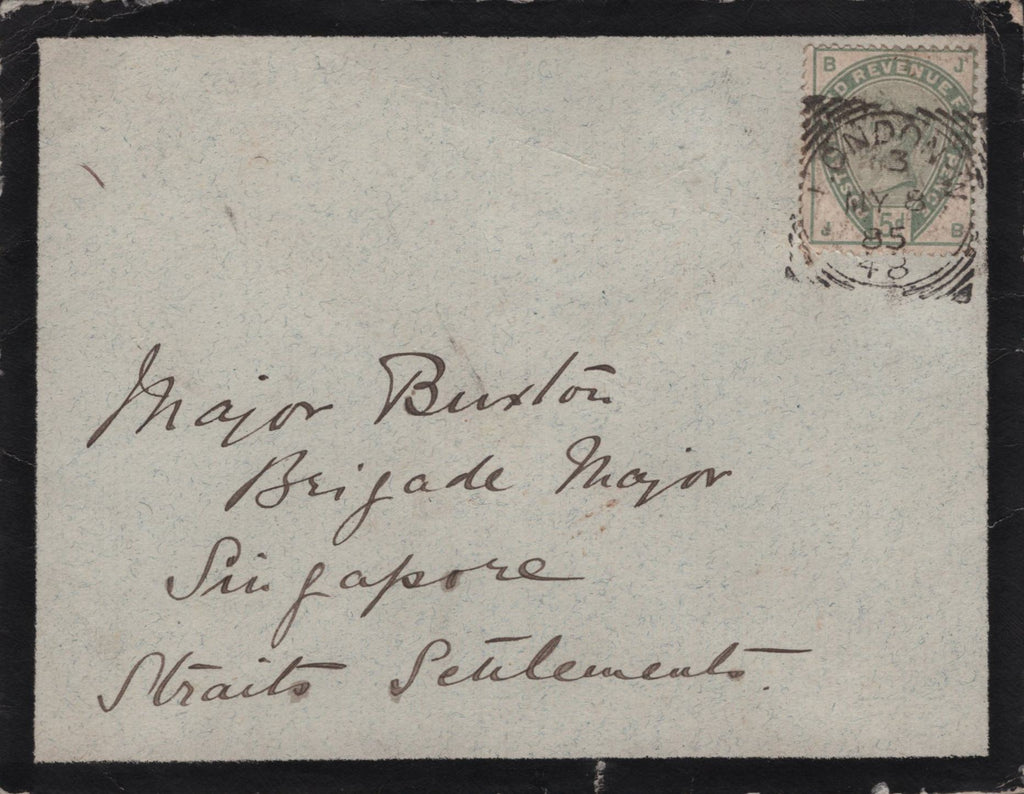 B J
POSTAGE AND REVENUE FIVE PENCE
J 5d B
LONDON
JY 8
85
48
Major Buxton
Brigade Major
Singapore
Straits Settlements.